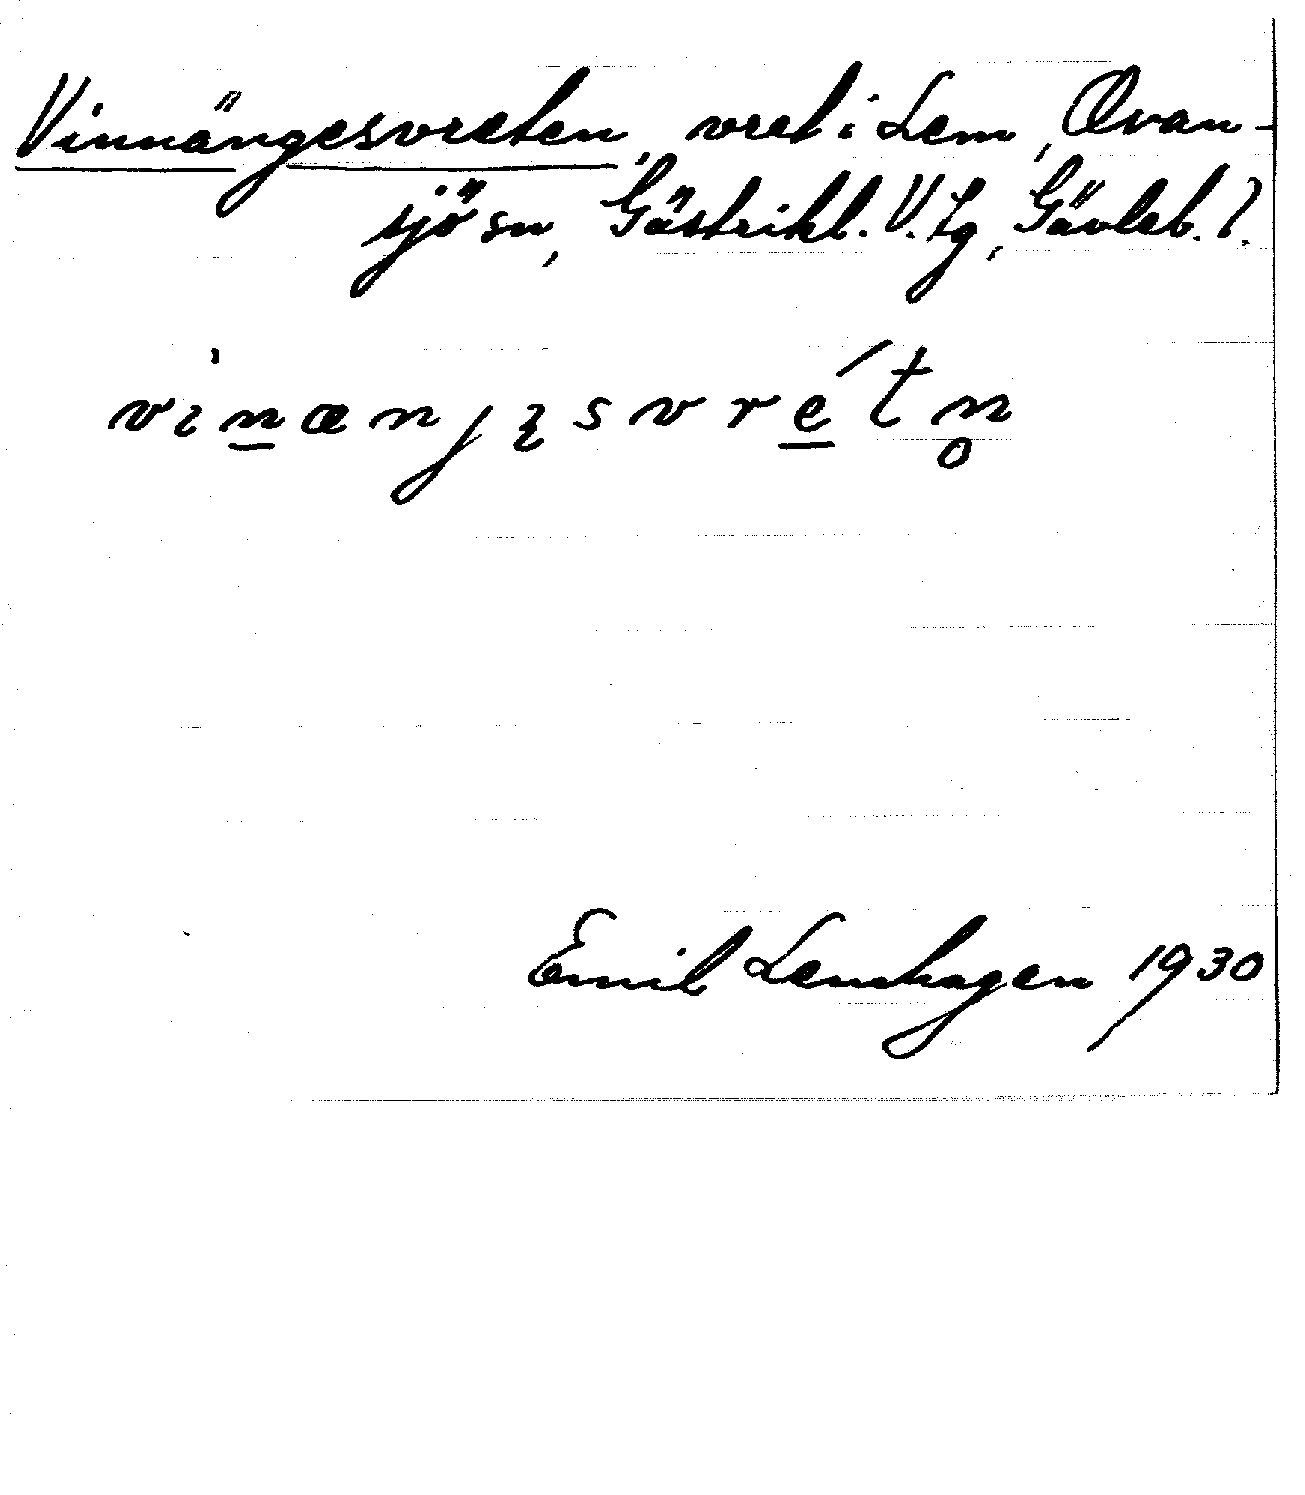 Vinnängesvreten, vret i Lem, Ovan-
sjö sn, Gästrikl. V. tg, Gävleb. l.
vi̍n̲ænjꝫsvré̲tn̥
Emil Lemhagen 1930